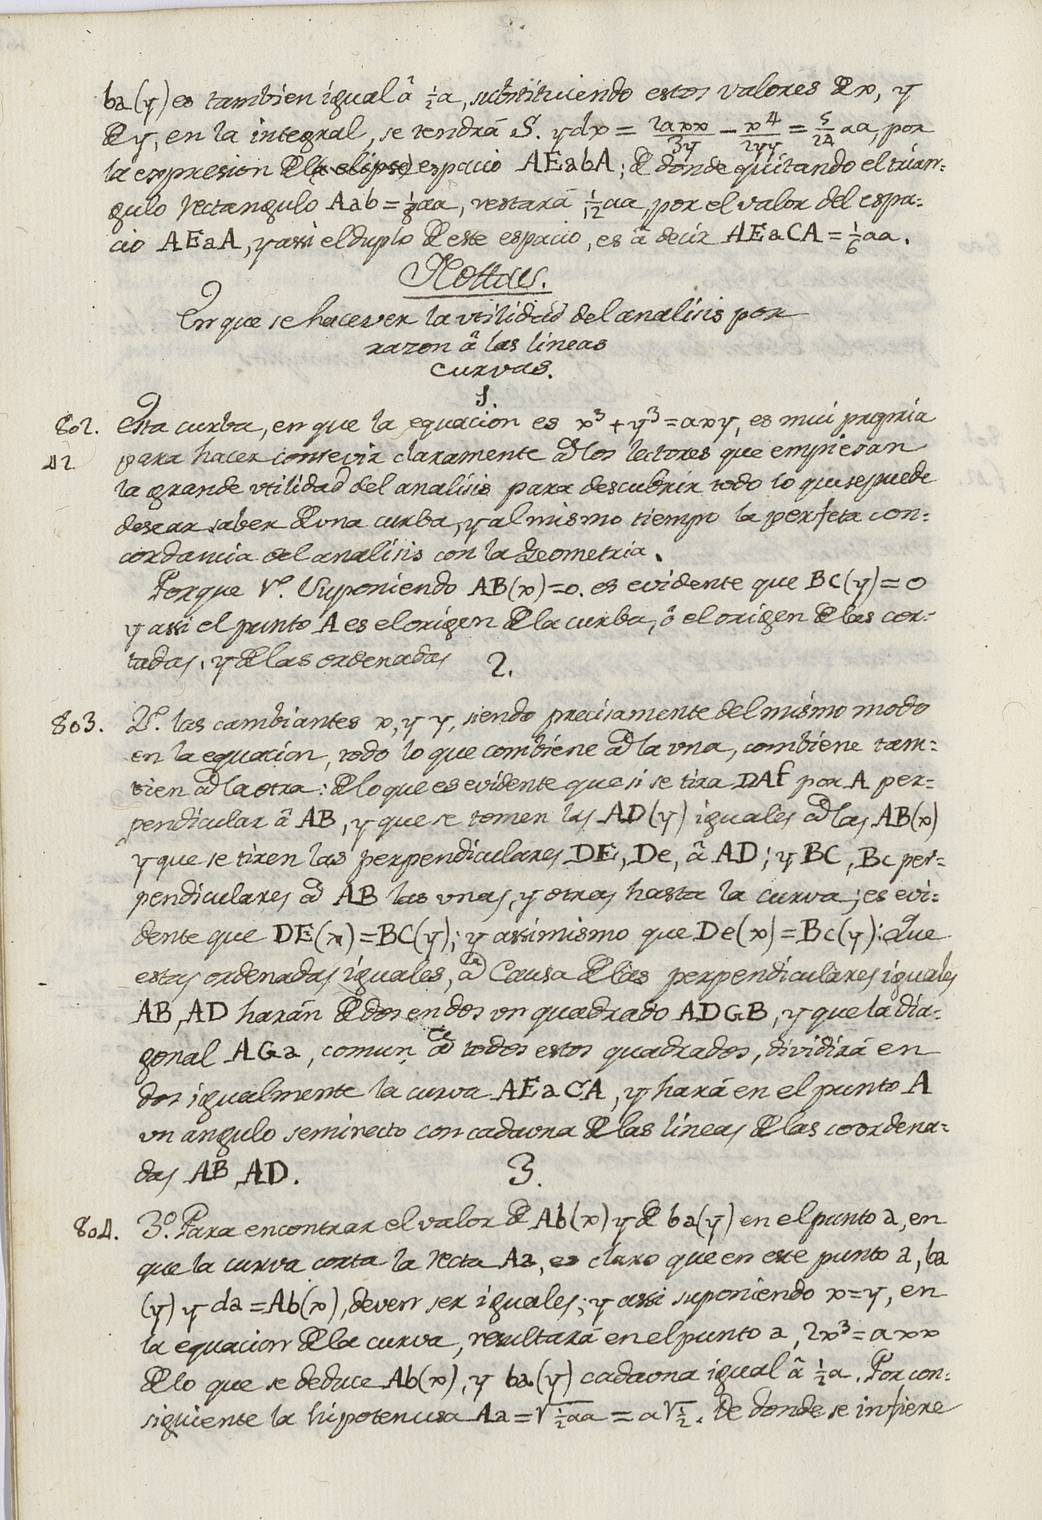 ba(y) es tambien igual â ½a, substituiendo estos valores de x, y
de y, en la integral, se tendrá S. ydx = 2axx/3y − x⁴/2yy = 5/24 aa, por
la expresion del espacio AEabA; de donde quitando el trian-
gulo rectangulo Aab = ⅛aa, restará 1/12 aa, por el valor del espa-
cio AEaA, y assi el duplo de este espacio, es â decir AEaCA = ⅙aa.
Nottas.
En que se hace ver la vtilidad del analisis por
razon â las lineas
curvas.
1.
802. Esta curba, en que la equacion es x³ + y³ = axy, es mui propria
42 para hacer consevir claramente ad los lectores que empiesan
la grande vtilidad del analisis para descubrir todo lo que se puede
desear saber de una curba, y al mismo tiempo la perfeta con-
cordancia del analisis con la Geometria.
Porque 1º. Suponiendo AB(x)=0. es evidente que BC(y)=0
y assi el punto A es el origen de la curba, ô el origen de las cor-
tadas, y de las ordenadas
2.
803. 2º. las cambiantes x, y y, siendo precisamente del mismo modo
en la equacion, todo lo que combiene ad la vna, combiene tam-
bien ad la otra: de lo que es evidente que si se tira DAf por A per-
pendicular â AB, y que se tomen las AD(y) iguales ad las AB(x)
y que se tiren las perpendiculares DE, De, â AD; y BC, Bc per-
pendiculares ad AB las vnas, y otras hasta la curva; es evi-
dente que DE(x)=BC(y); y assimismo que De(x)=Bc(y): Que
estas ordenadas iguales, ad Causa de las perpendiculares iguales
AB, AD harán de dos en dos vn quadrado ADGB, y que la dia-
gonal AGa, comun ad todos estos quadrados, dividirá en
dos igualmente la curva AEaCA, y hará en el punto A
vn angulo semirecto con cadauna de las lineas de las coordena-
das AB, AD.
3.
804. 3º. Para encontrar el valor de Ab(x) y de ba(y) en el punto a, en
que la curva corta la recta Aa, es claro que en este punto a, ba
(y) y da = Ab(x), deven ser iguales; y assi suponiendo x=y, en
la equacion de la curva, resultará en el punto a, 2x³ = axx
de lo que se deduce Ab(x), y ba(y) cadauna igual â ½a. Por con-
siguiente la hipotenusa Aa = √½aa = a√½. de donde se infiere